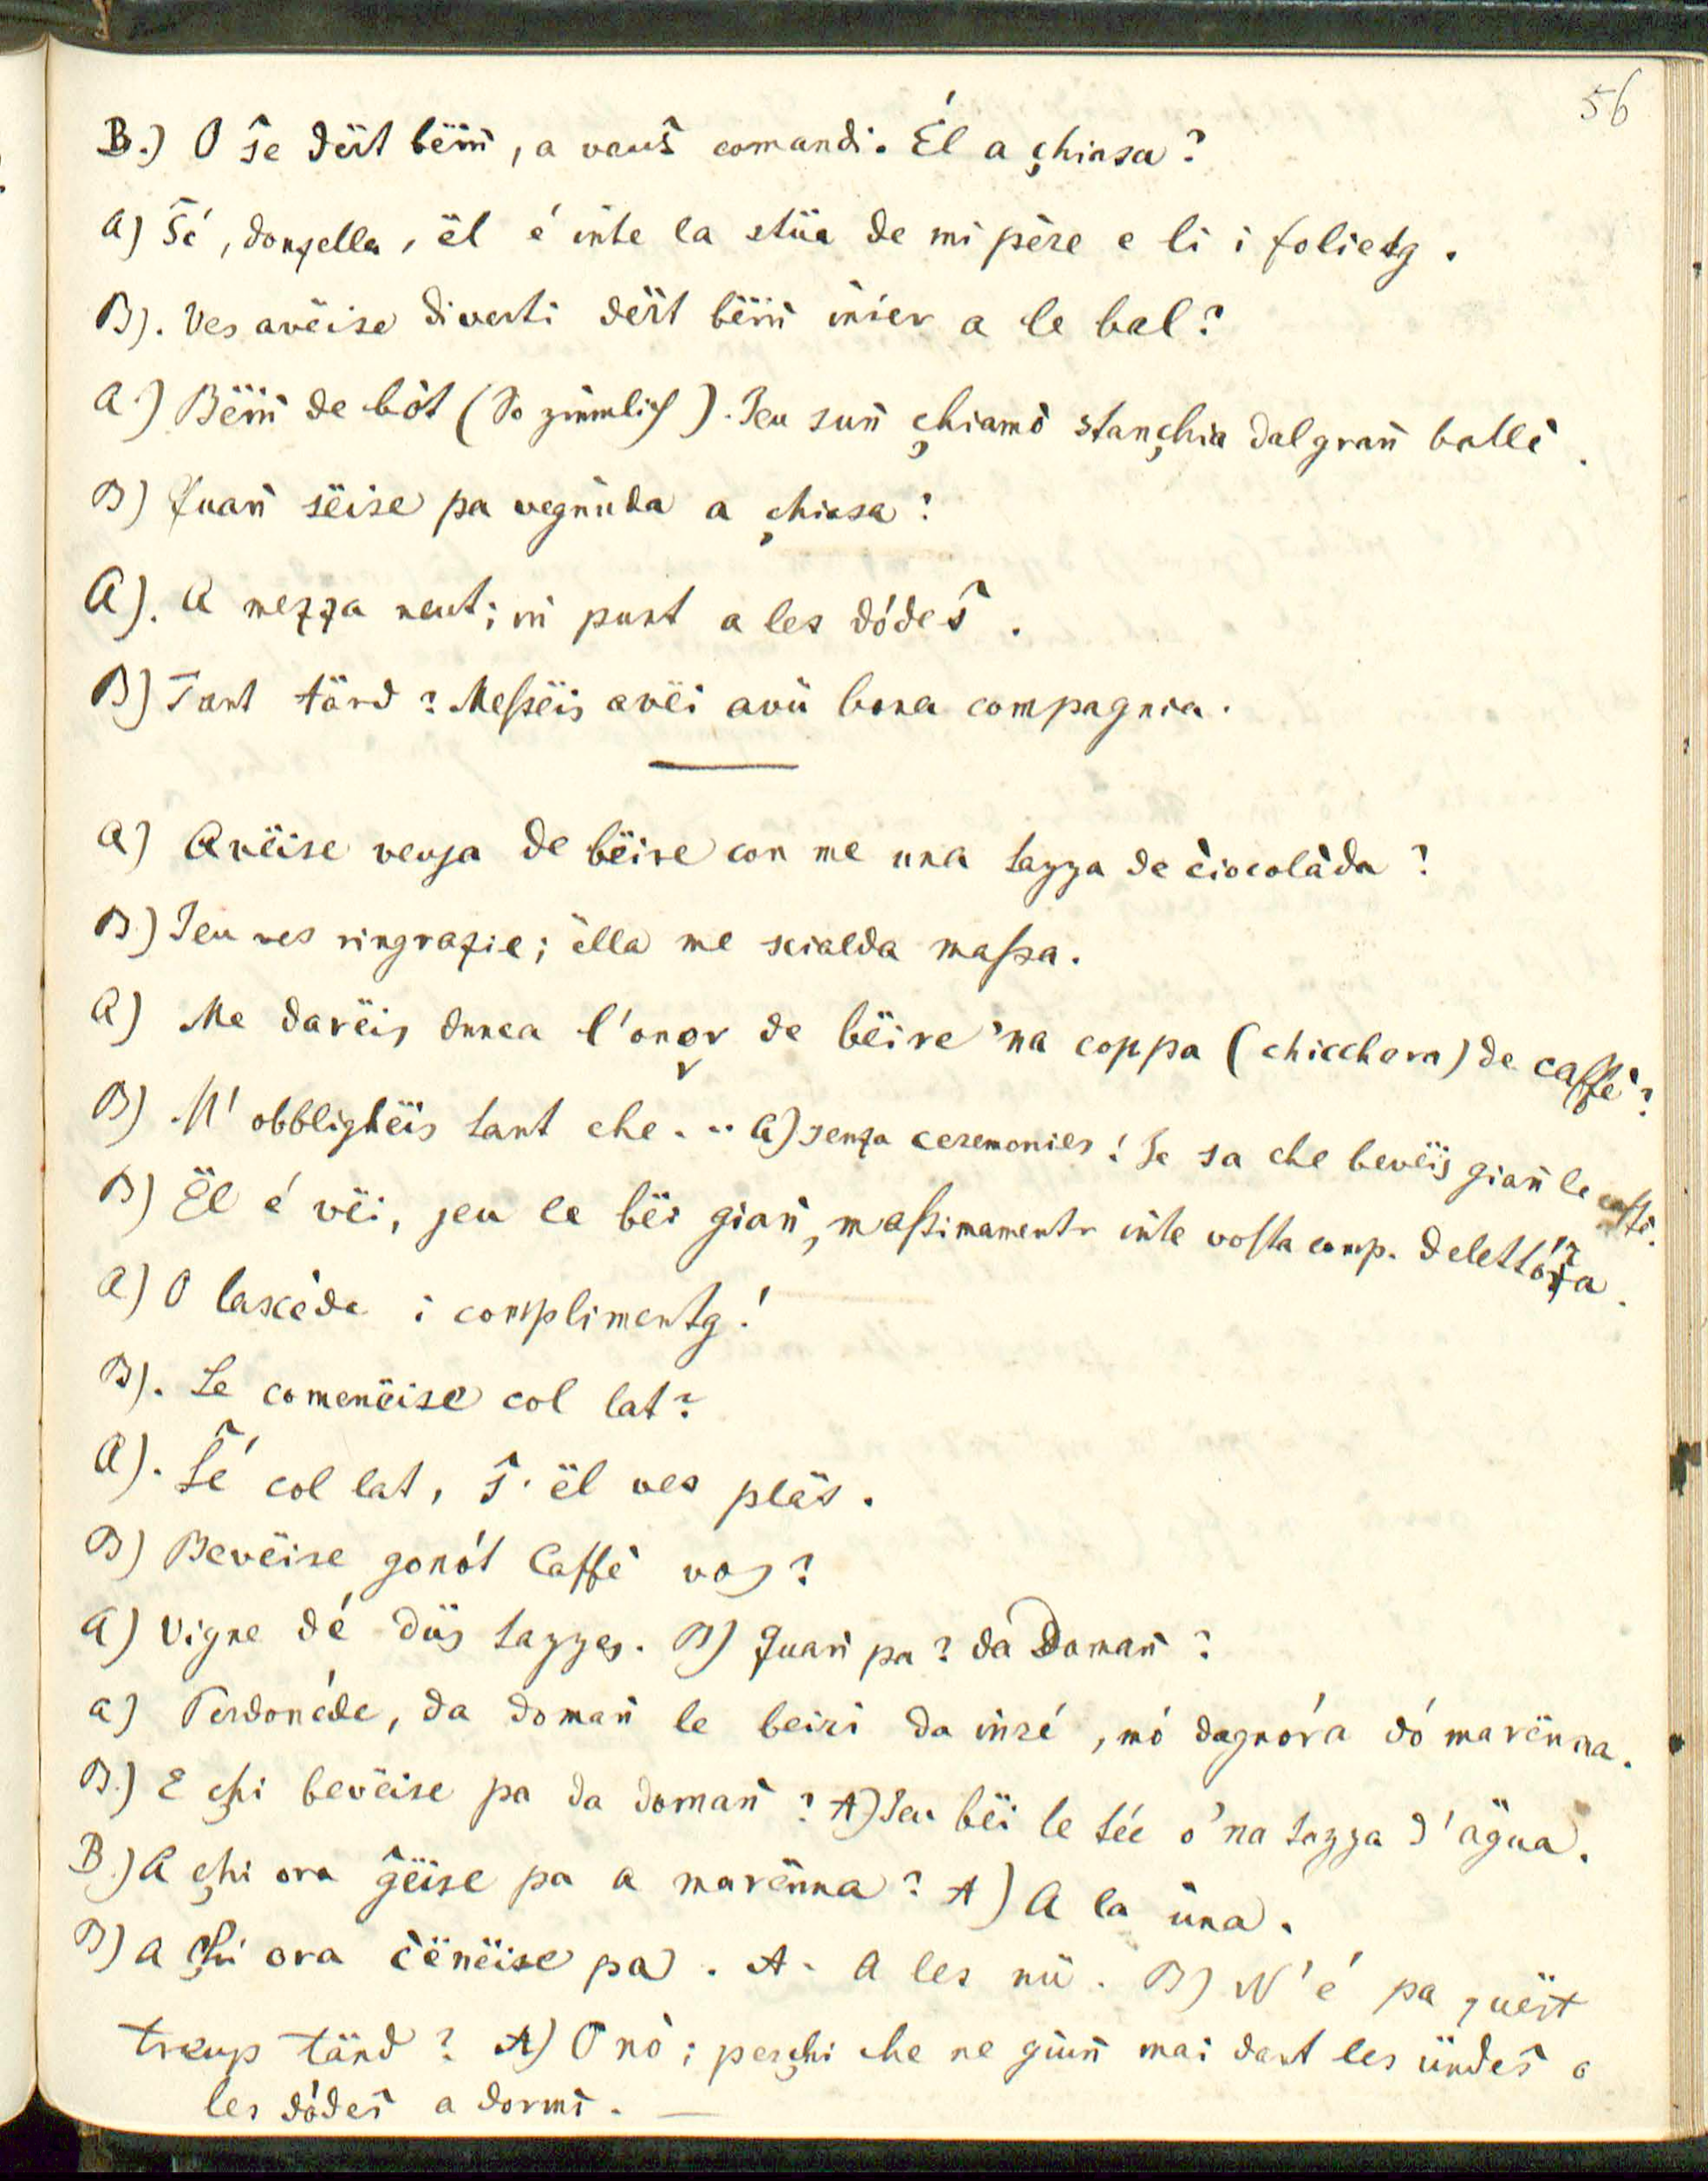 56
B.) O s̃e dërt bëm̈, a vaus̃ comandi. Él a çhiasa?
A) S̃é, donzella, ël é iñte la stüa de mi père e li i folietg.
B). Ves avëise diverti dërt bëm̈ iñier a le bal?
A.) Bëm̈ de bòt (So zimmlich). Jeu suñ çhiamò stançhia dal grañ ballè.
B) Quañ sëise pa vegnüda a çhiasa?
A). A mezza neut; iñ punt a les dódes̃.
B) Tant tärd? Messëis avëi avü bona compagnia.
A) Avëise veuja de bëire con me una tazza de ciocolàda?
B) Jeu ves ringrazie; ëlla me scialda massa.
A) Me darëis dunca l'onor de bëire 'na coppa (chicchera) de caffè?
B) M' obblighëis tant che... A) senza ceremonies! Je sa che bevëis giañ le caffè.
B) Ël é vëi, jeu le bëi giañ, massimamentr iñte vosta comp. delettóza.
A) O lascède i complimentg!
B). Le comenëise col lat?
A). S̃é col lat, s̃' ël ves pläs.
B) Bevëise gonót Caffè vos?
A) Vigne dé düs tazzes. B) Quañ pa? da Domañ?
A) Perdonéde, da domañ le beizi da iñzé, mó dagnóra dó marënna.
B.) E çhi bevëise pa da domañ? A) Jeu bëi le tée o 'na tazza d'ägua.
B.) A çhi ora g̃ëise pa a marënna? A) A la üna.
B) A çhi ora cënëise pa. A. A les nü. B) N'é pa quëst
treup tärd? A) O nò; perçhi che ne giuñ mai dant les ündes̃ o
les dódes̃ a dormì.